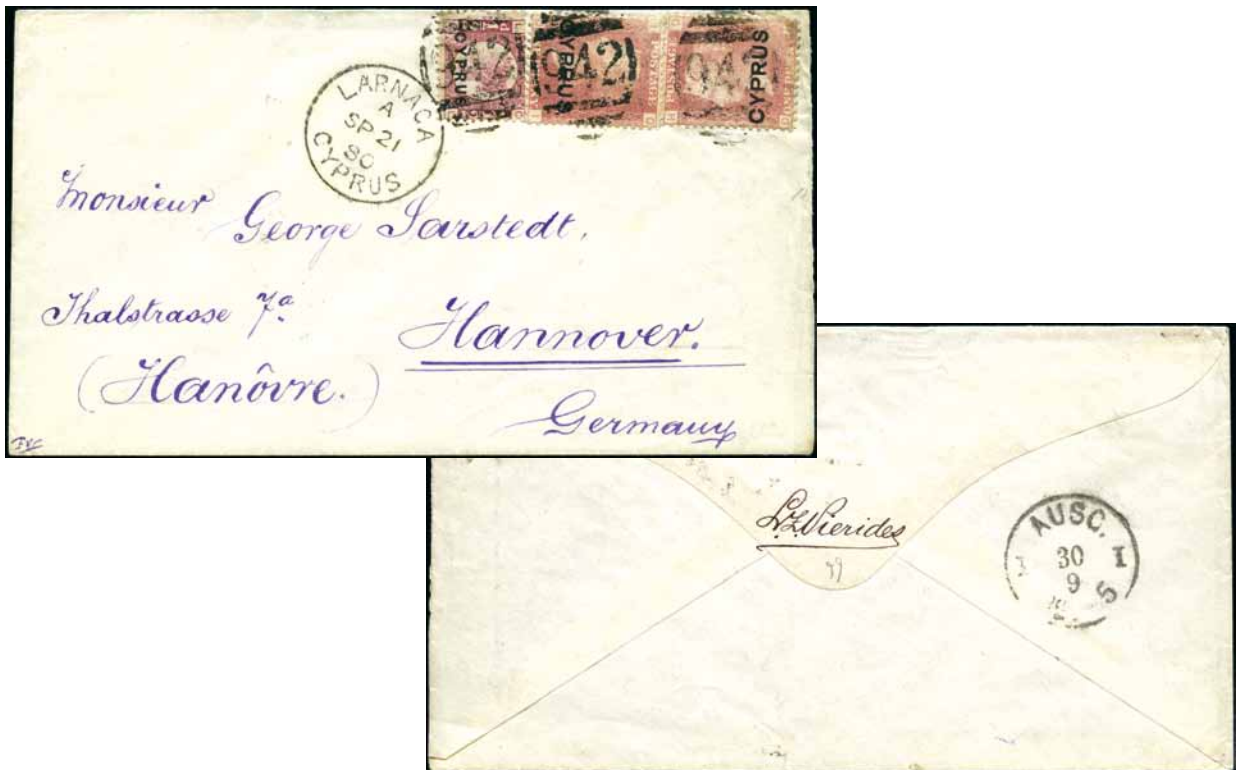 CYPRUS
CYPRUS
CYPRUS
942
942
942
LARNACA
A
SP 21
80
CYPRUS
Monsieur
George Sarstedt,
Thalstrasse 7a
Hannover.
(Hanôvre.)
Germany
L.Z. Pierides
49
AUSG.
I 30 I
9
S